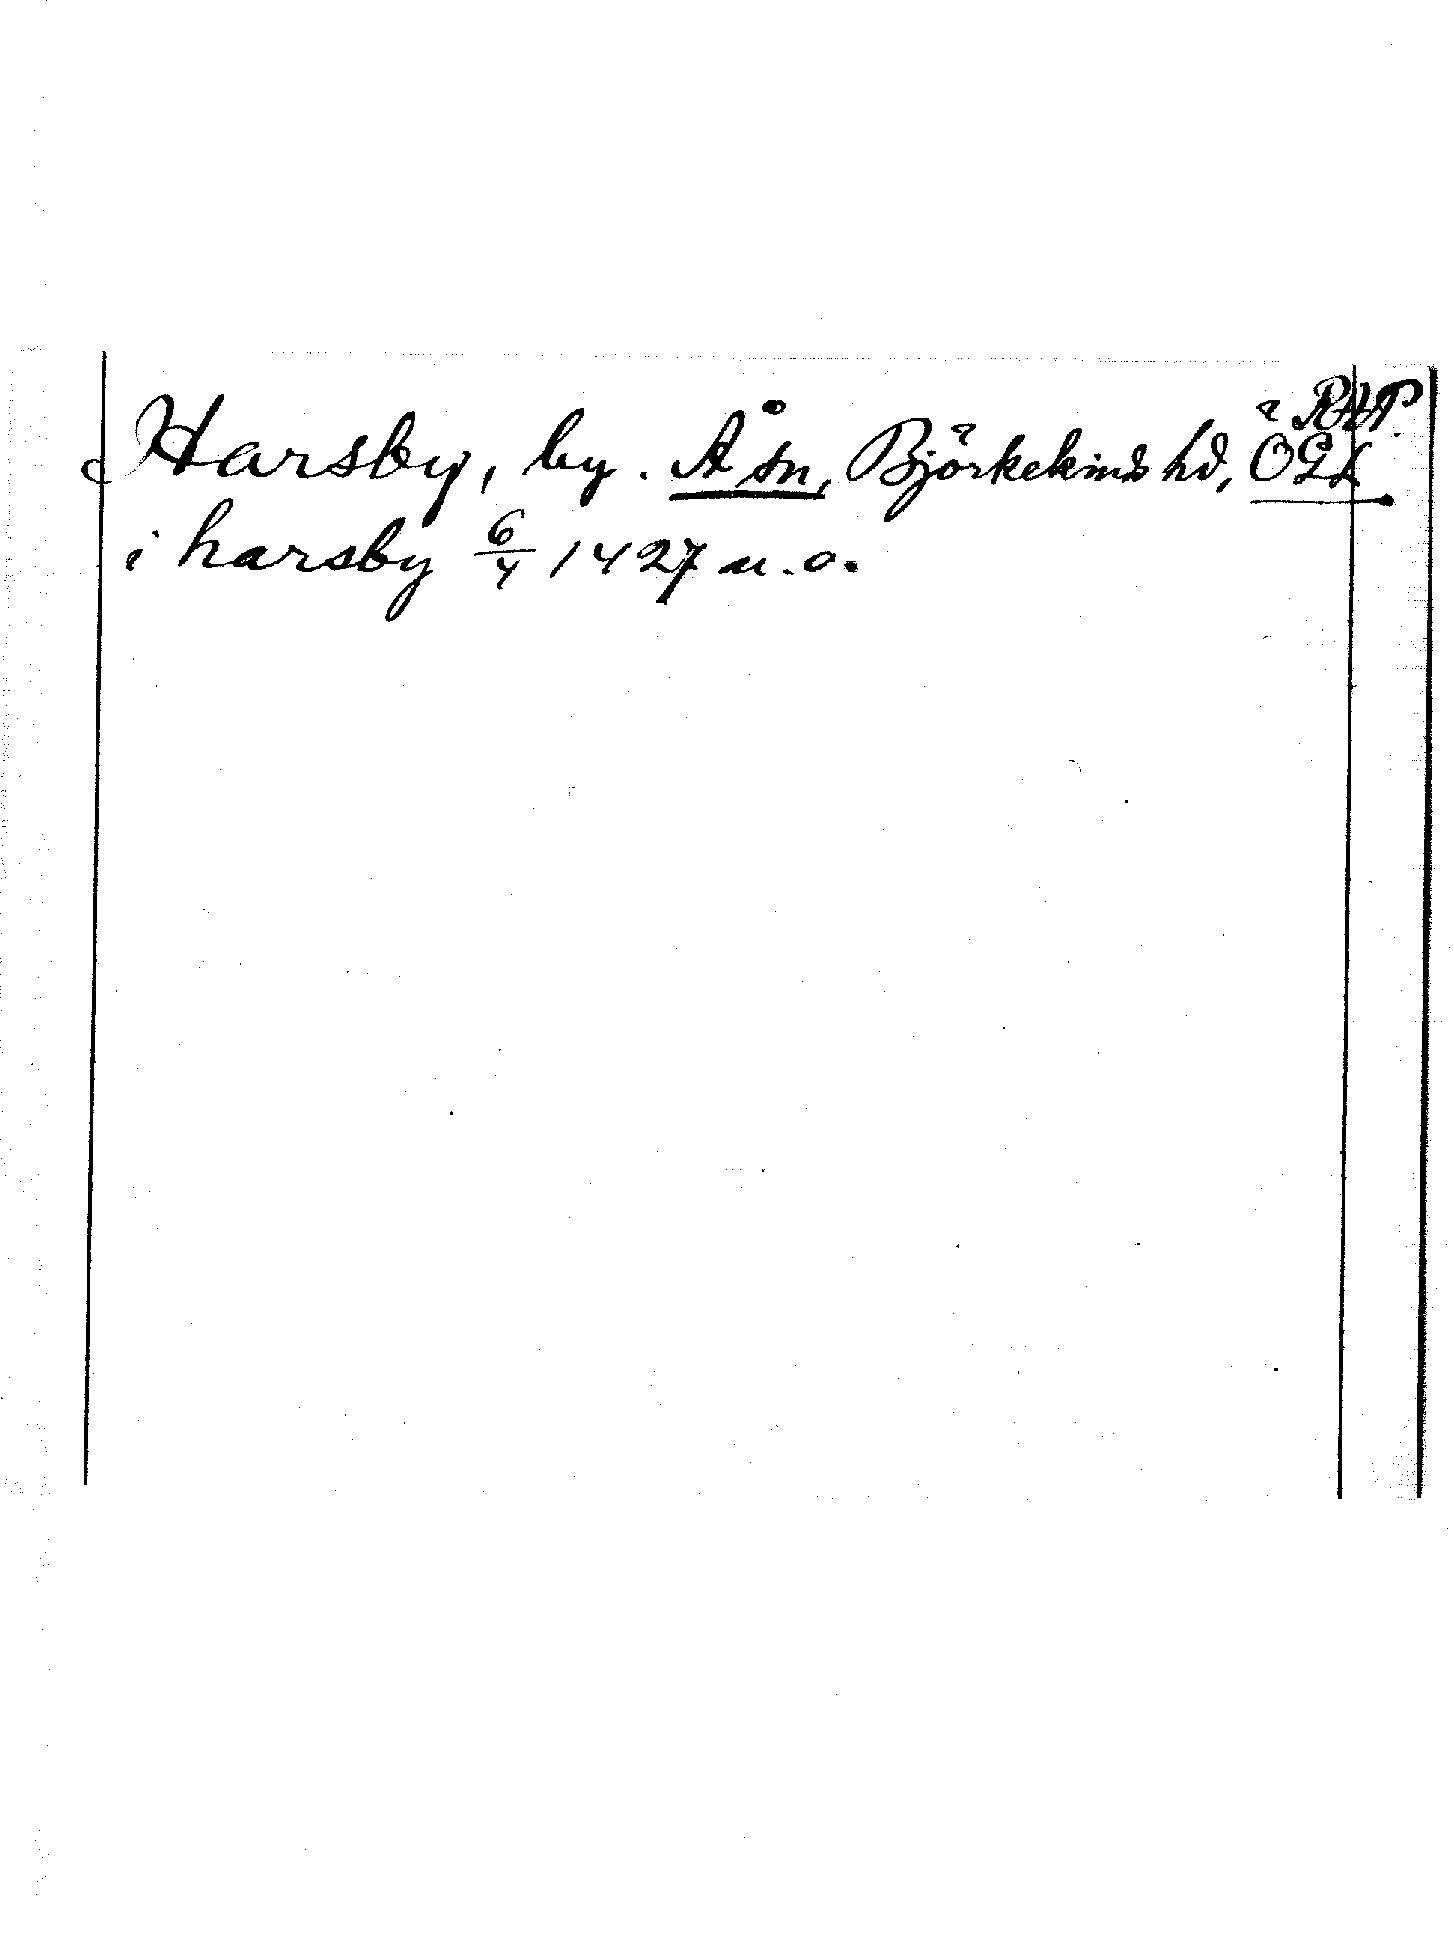 RAP
Harsby, by. Å sn, Björkekinds hd, ÖGL
i harsby 6/4 1427 u.o.